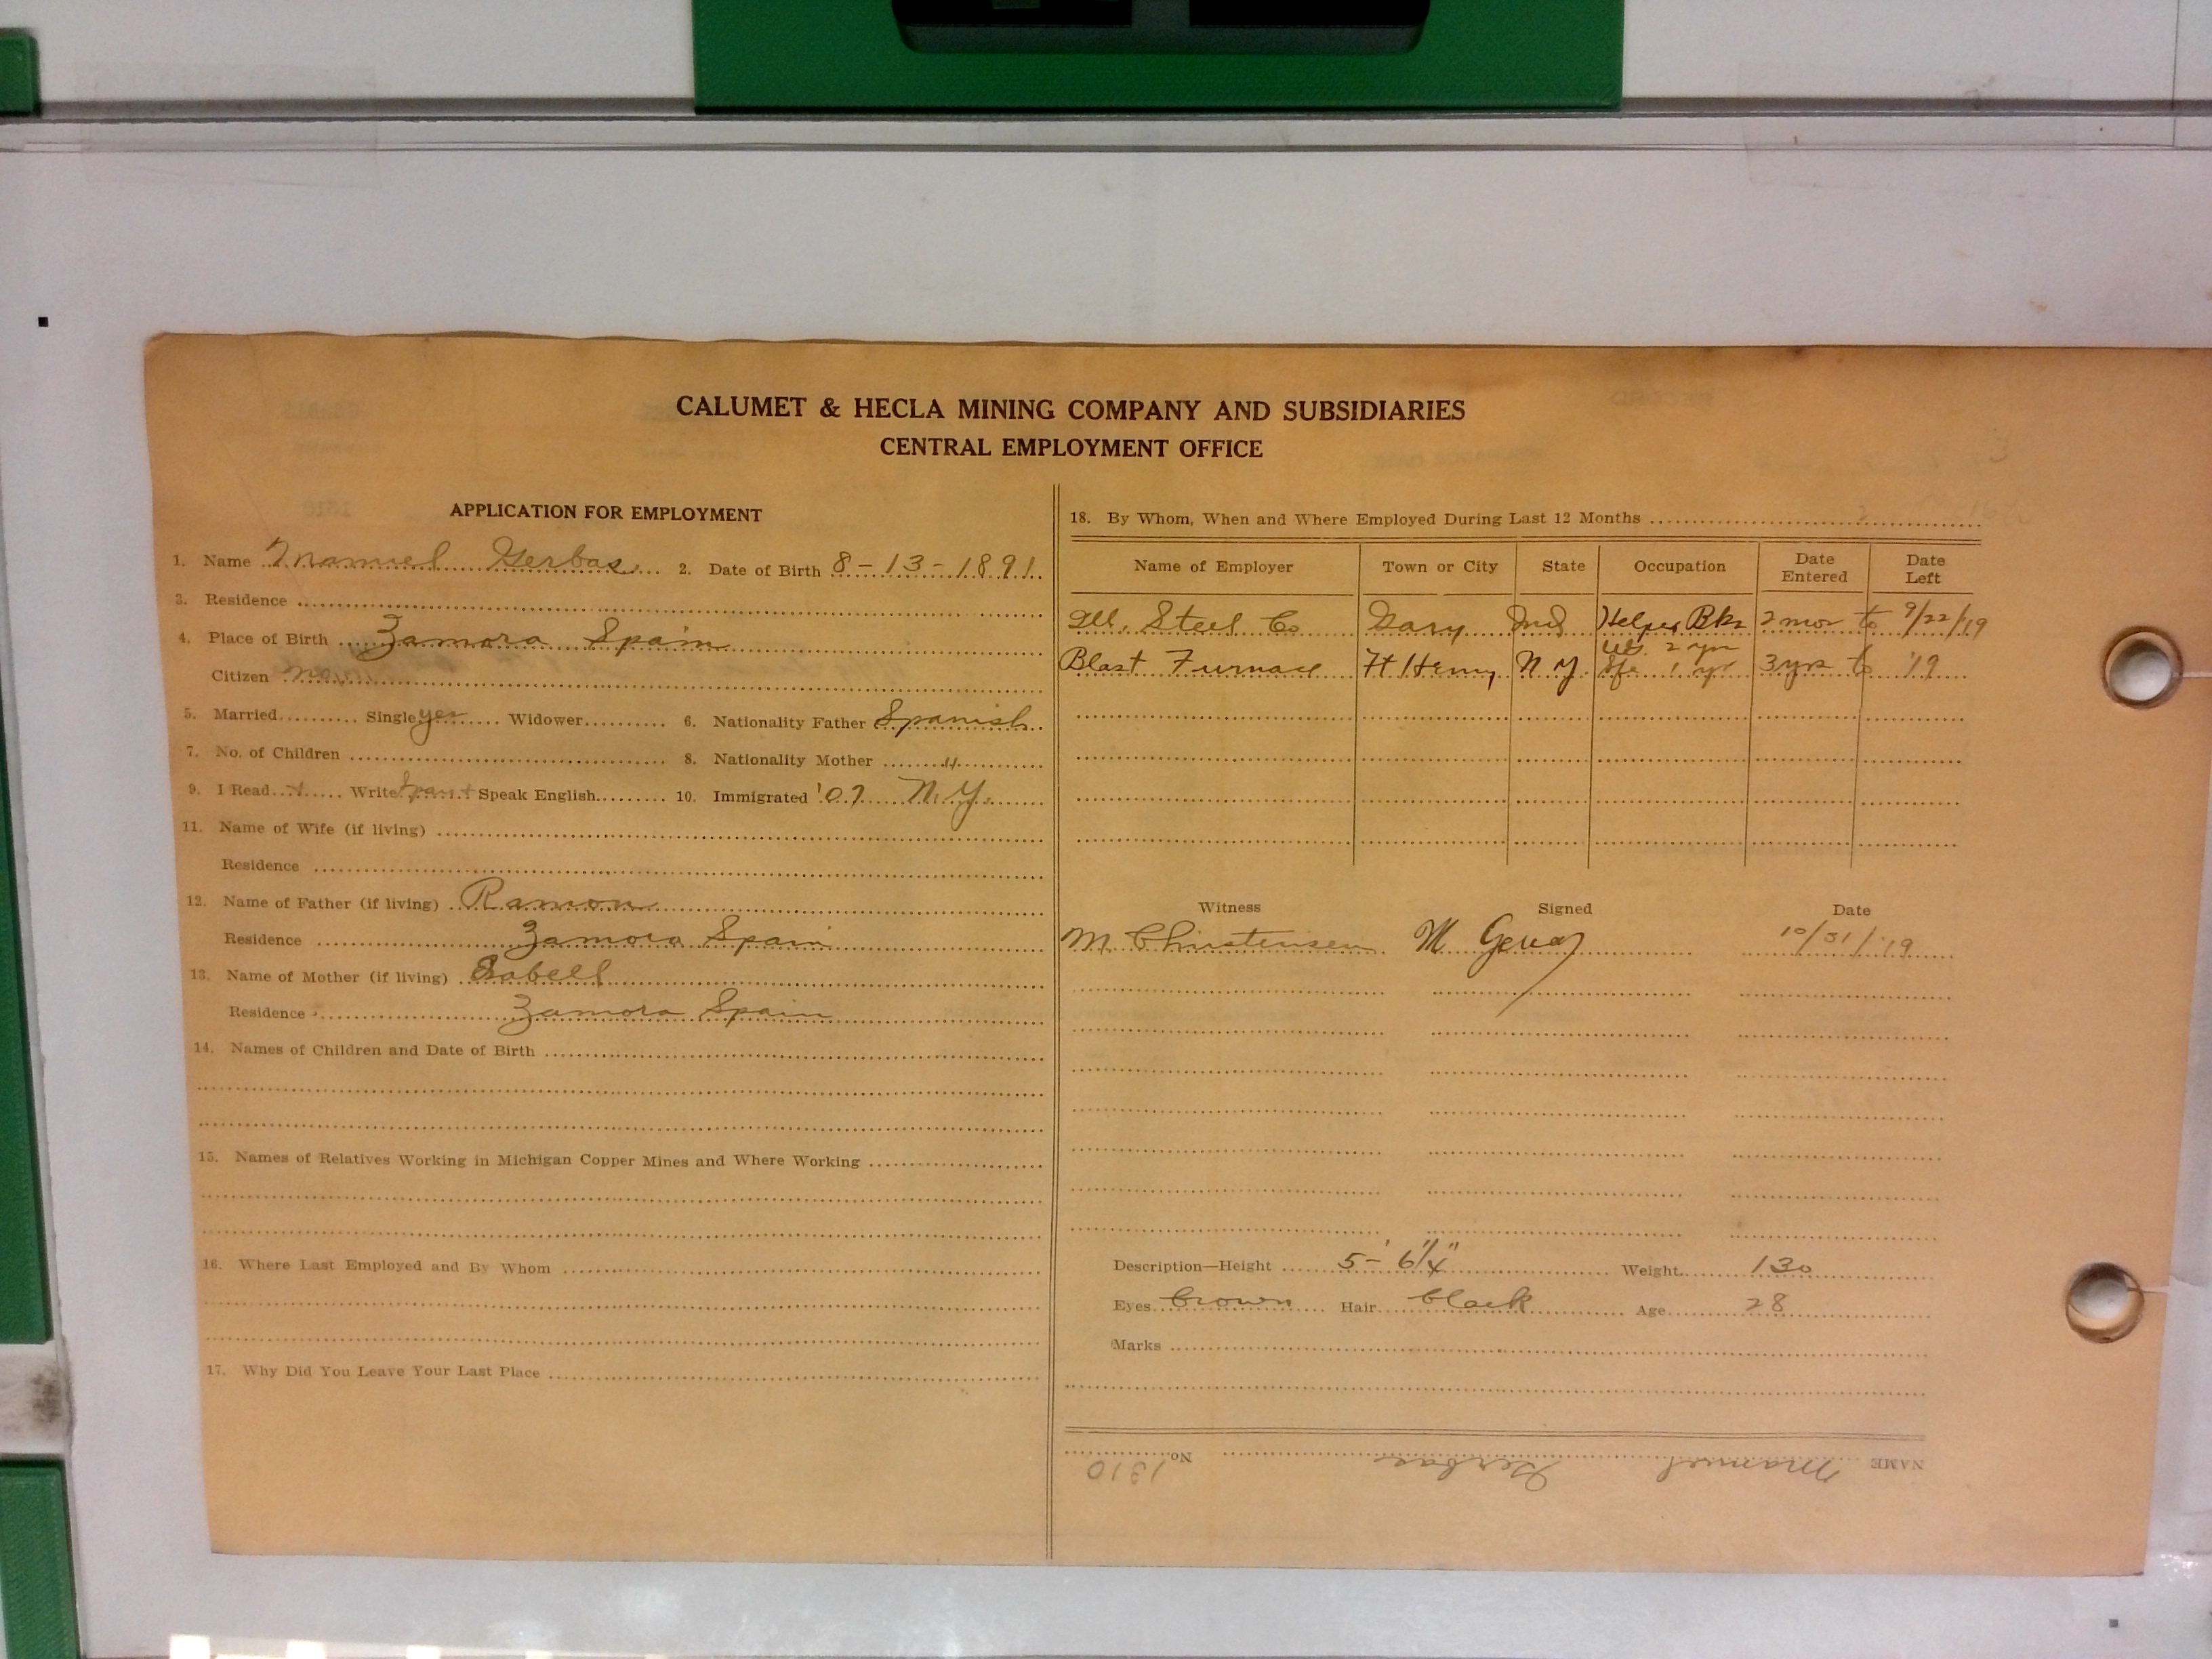 CALUMET & HECLA MINING COMPANY AND SUBSIDIARIES
CENTRAL EMPLOYMENT OFFICE
APPLICATION FOR EMPLOYMENT
1. Name Manuel Gerbas 2. Date of Birth 8-13-1891
3. Residence
4. Place of Birth Zamora Spain
Citizen no
5. Married Single yes Widower 6. Nationality Father Spanish
7. No. of Children 8. Nationality Mother "
9. I Read Write Span Speak English 10. Immigrated '07 N.Y.
11. Name of Wife (if living)
Residence
12. Name of Father (if living) Ramon
Residence Zamora Spain
13. Name of Mother (if living) Isabell
Residence Zamora Spain
14. Names of Children and Date of Birth
15. Names of Relatives Working in Michigan Copper Mines and Where Working
16. Where Last Employed and By Whom
17. Why Did You Leave Your Last Place
18. By Whom, When and Where Employed During Last 12 Months
Name of Employer Town or City State Occupation Date Entered Date Left
Ill. Steel Co Gary Ind Helper Bks 2 mos to 9/22/19
Blast Furnace Ft Henry N Y 2 yrs 1 yr 3 yrs to '19
Witness Signed Date
M. Christensen M 10/31/19
Description—Height 5-' 6 1/4" Weight 130
Eyes brown Hair black Age 28
Marks
NAME Manuel Gerbas No. 1310